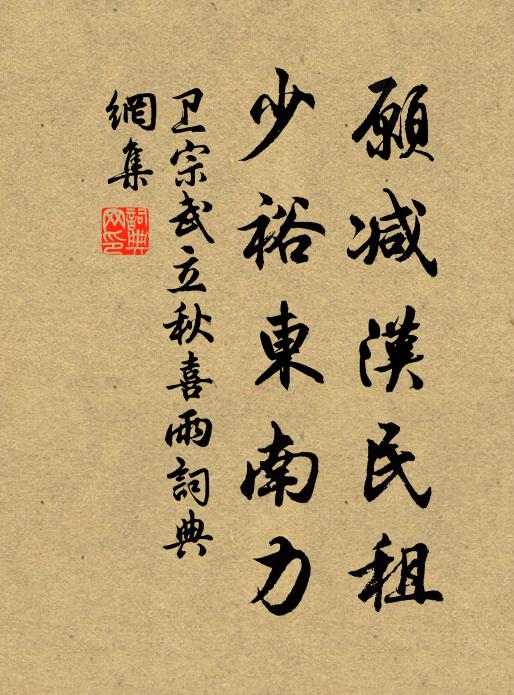 願减漢民租
少裕東南力
卫宗武立秋喜雨詞典
網集
詞典
网印